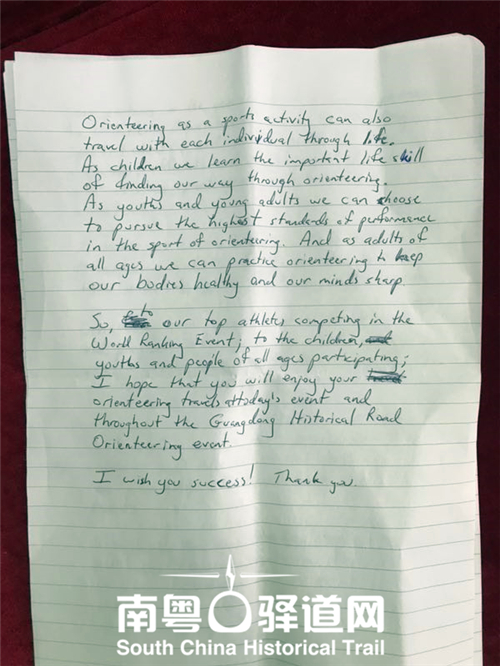 Orienteering as a sports activity can also
travel with each individual through life.
As children we learn the important life skill
of finding our way through orienteering.
As youths and young adults we can choose
to pursue the highest standards of performance
in the sport of orienteering. And as adults of
all ages we can practice orienteering to keep
our bodies healthy and our minds sharp.
So, to our top athletes competing in the
World Ranking Event; to the children,
youths and people of all ages participating;
I hope that you will enjoy your
orienteering travels at today's event and
throughout the Guangdong Historical Road
Orienteering event.
I wish you success! Thank you.
南粤古驿道网
South China Historical Trail